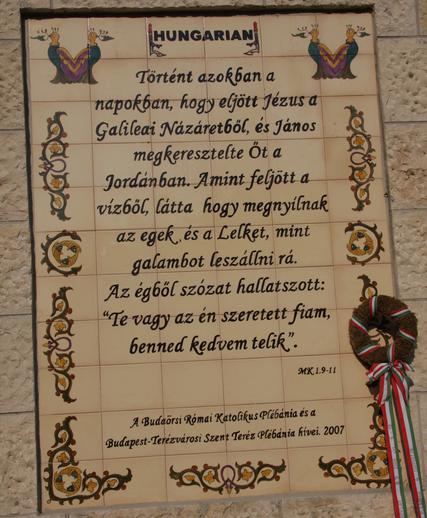 HUNGARIAN
Történt azokban a
napokban, hogy eljött Jézus a
Galileai Názáretből, és János
megkeresztelte Őt a
Jordánban. Amint feljött a
vízből, látta hogy megnyílnak
az egek, és a Lelket, mint
galambot leszállni rá.
Az égből szózat hallatszott:
“Te vagy az én szeretett fiam,
benned kedvem telik”.
MK 1.9-11
A Budaörsi Római Katolikus Plébánia és a
Budapest-Terézvárosi Szent Teréz Plébánia hívei. 2007